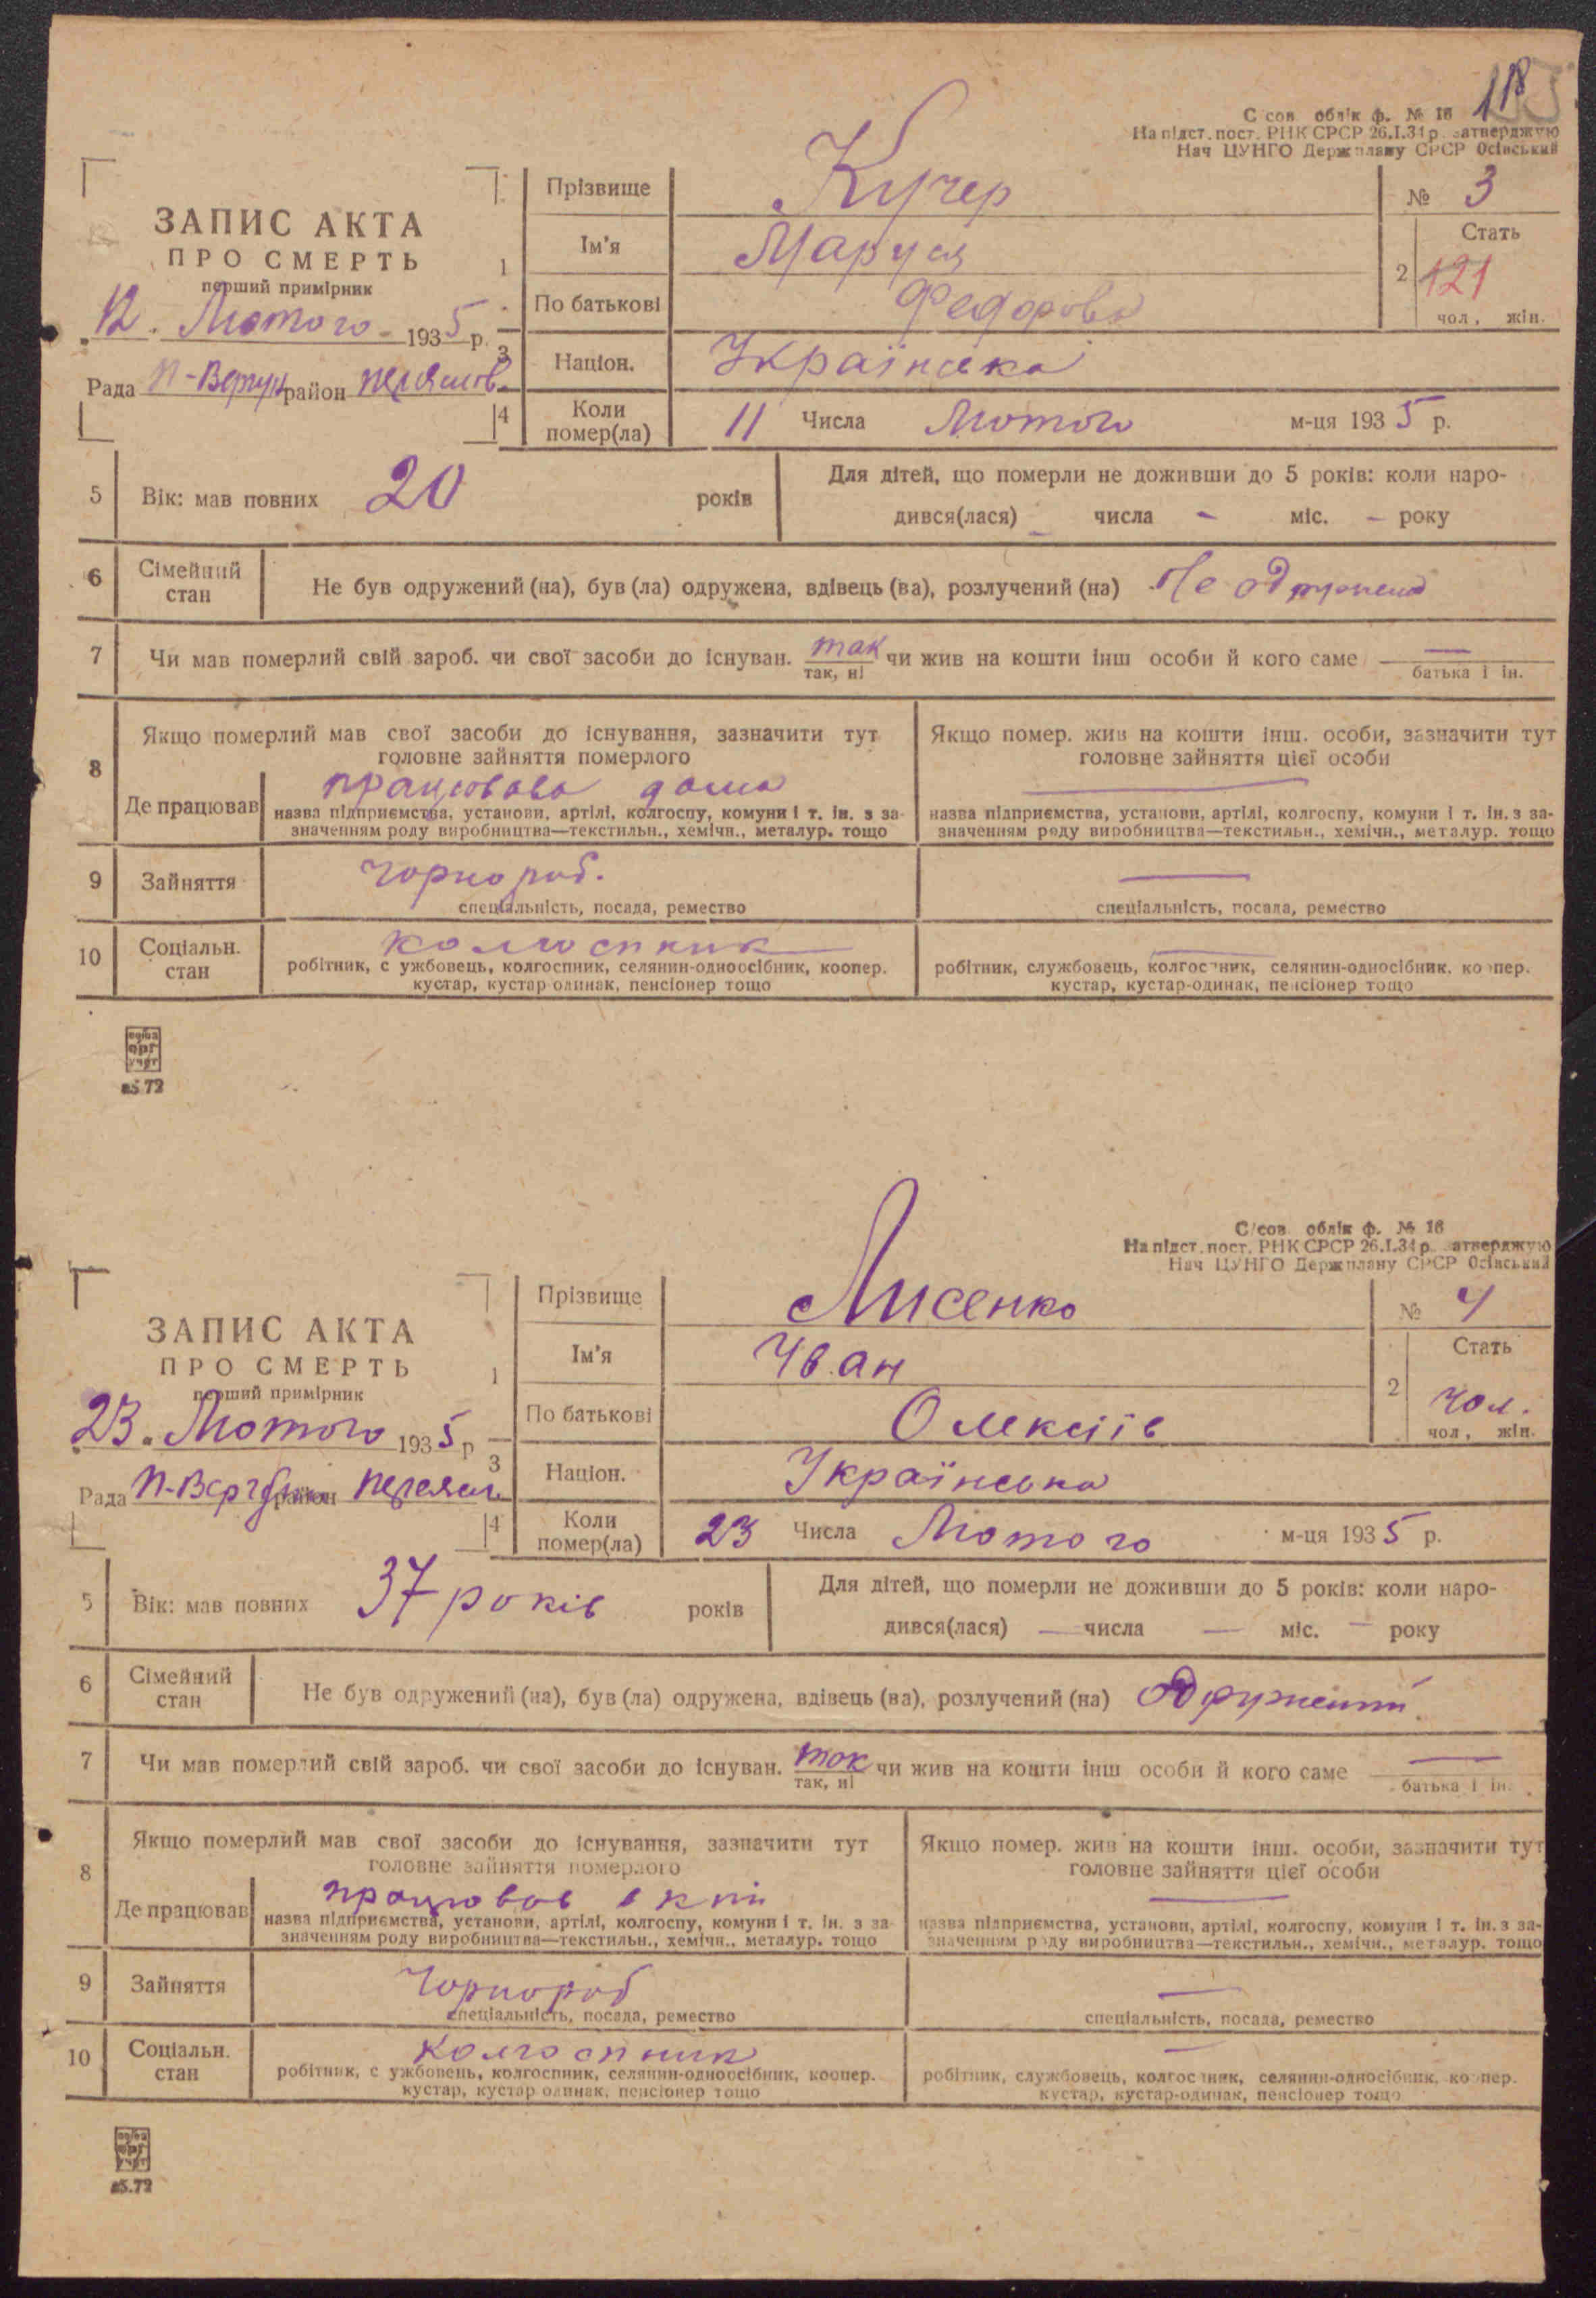 118
С сов облік ф. № 16
На підст. пост. РНК СРСР 26.I.31 р. затверджую
Нач ЦУНГО Держплану СРСР Осінський
ЗАПИС АКТА
ПРО СМЕРТЬ
перший примірник
12. Лютого 1935 р.
Рада П-Вергун район
1 Прізвище Кучер
№ 3
Ім'я Маруся
По батькові Федорова
2 Стать
121
чол, жін.
3 Націон. Українська
4 Коли помер(ла) 11 Числа Лютого м-ця 1935 р.
5 Вік: мав повних 20 років
Для дітей, що померли не доживши до 5 років: коли наро-
дився(лася) - числа - міс. - року
6 Сімейний стан Не був одружений (на), був (ла) одружена, вдівець (ва), розлучений (на) Не одружена
7 Чи мав померлий свій зароб. чи свої засоби до існуван. так чи жив на кошти інш особи й кого саме —
так, ні
батька і ін.
8 Якщо померлий мав свої засоби до існування, зазначити тут
головне зайняття померлого
Якщо помер. жив на кошти інш. особи, зазначити тут
головне зайняття цієї особи
Де працював працювала дома —
назва підприємства, установи, артілі, колгоспу, комуни і т. ін. з за-
значенням роду виробництва—текстильн., хемічн., металур. тощо
назва підприємства, установи, артілі, колгоспу, комуни і т. ін. з за-
значенням роду виробництва—текстильн., хемічн., металур. тощо
9 Зайняття чорнороб. —
спеціальність, посада, ремество
спеціальність, посада, ремество
10 Соціальн. стан колгоспник —
робітник, с ужбовець, колгоспник, селянин-одноосібник, коопер.
кустар, кустар одинак, пенсіонер тощо
робітник, службовець, колгоспник, селянин-односібник. коопер.
кустар, кустар-одинак, пенсіонер тощо
орг
учет
з5.72
С/сов облік ф. № 16
На підст. пост. РНК СРСР 26.I.31 р. затверджую
Нач ЦУНГО Держплану СРСР Осінський
ЗАПИС АКТА
ПРО СМЕРТЬ
перший примірник
23. Лютого 1935 р
Рада район Переясл.
1 Прізвище Лисенко
№ 4
Ім'я Іван
По батькові Олексіїв
2 Стать
чол.
чол, жін.
3 Націон. Українська
4 Коли помер(ла) 23 Числа Лютого м-ця 1935 р.
5 Вік: мав повних 37 років років
Для дітей, що померли не доживши до 5 років: коли наро-
дився(лася) — числа — міс. — року
6 Сімейний стан Не був одружений (на), був (ла) одружена, вдівець (ва), розлучений (на) одружений
7 Чи мав померлий свій зароб. чи свої засоби до існуван. так чи жив на кошти інш особи й кого саме —
так, ні
батька і ін.
8 Якщо померлий мав свої засоби до існування, зазначити тут
головне зайняття померлого
Якщо помер. жив на кошти інш. особи, зазначити тут
головне зайняття цієї особи
Де працював працював в —
назва підприємства, установи, артілі, колгоспу, комуни і т. ін. з за-
значенням роду виробництва—текстильн., хемічн., металур. тощо
назва підприємства, установи, артілі, колгоспу, комуни і т. ін. з за-
значенням роду виробництва—текстильн., хемічн., металур. тощо
9 Зайняття Чорнороб —
спеціальність, посада, ремество
спеціальність, посада, ремество
10 Соціальн. стан Колгоспник —
робітник, с ужбовець, колгоспник, селянин-одноосібник, коопер.
кустар, кустар одинак, пенсіонер тощо
робітник, службовець, колгоспник, селянин-односібник. коопер.
кустар, кустар-одинак, пенсіонер тощо
орг
учет
з5.72